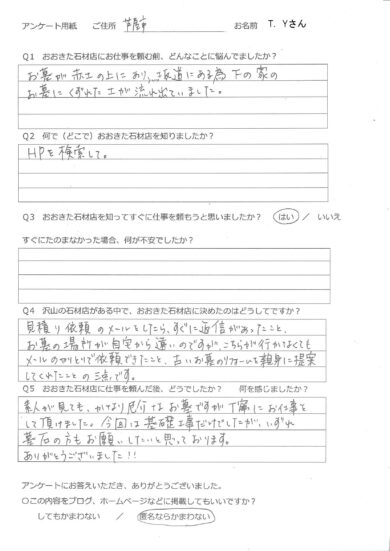 アンケート用紙　ご住所　芦屋市　お名前　T. Yさん
Q1　おおきた石材店にお仕事を頼む前、どんなことに悩んでましたか？
お墓が赤土の上にあり、坂道にある為下の家の
お墓にくずれた土が流れ出ていました。
Q2　何で（どこで）おおきた石材店を知りましたか？
HPを検索して。
Q3　おおきた石材店を知ってすぐに仕事を頼もうと思いましたか？　はい　／　いいえ
すぐにたのまなかった場合、何が不安でしたか？
Q4　沢山の石材店がある中で、おおきた石材店に決めたのはどうしてですか？
見積り依頼のメールをしたら、すぐに返信があったこと、
お墓の場所が自宅から遠いのですが、こちらが行かなくても
メールのやりとりで依頼できたこと、古いお墓のリフォームを親身に提案
してくれたことの三点です。
Q5　おおきた石材店に仕事を頼んだ後、どうでしたか？　何を感じましたか？
素人が見ても、かなり厄介なお墓ですが丁寧にお仕事を
して頂けました。今回は基礎工事だけでしたが、いずれ
墓石の方もお願いしたいと思っております。
ありがとうございました！！
アンケートにお答えいただき、ありがとうございました。
〇この内容をブログ、ホームページなどに掲載してもいいですか？
してもかまわない　／　匿名ならかまわない